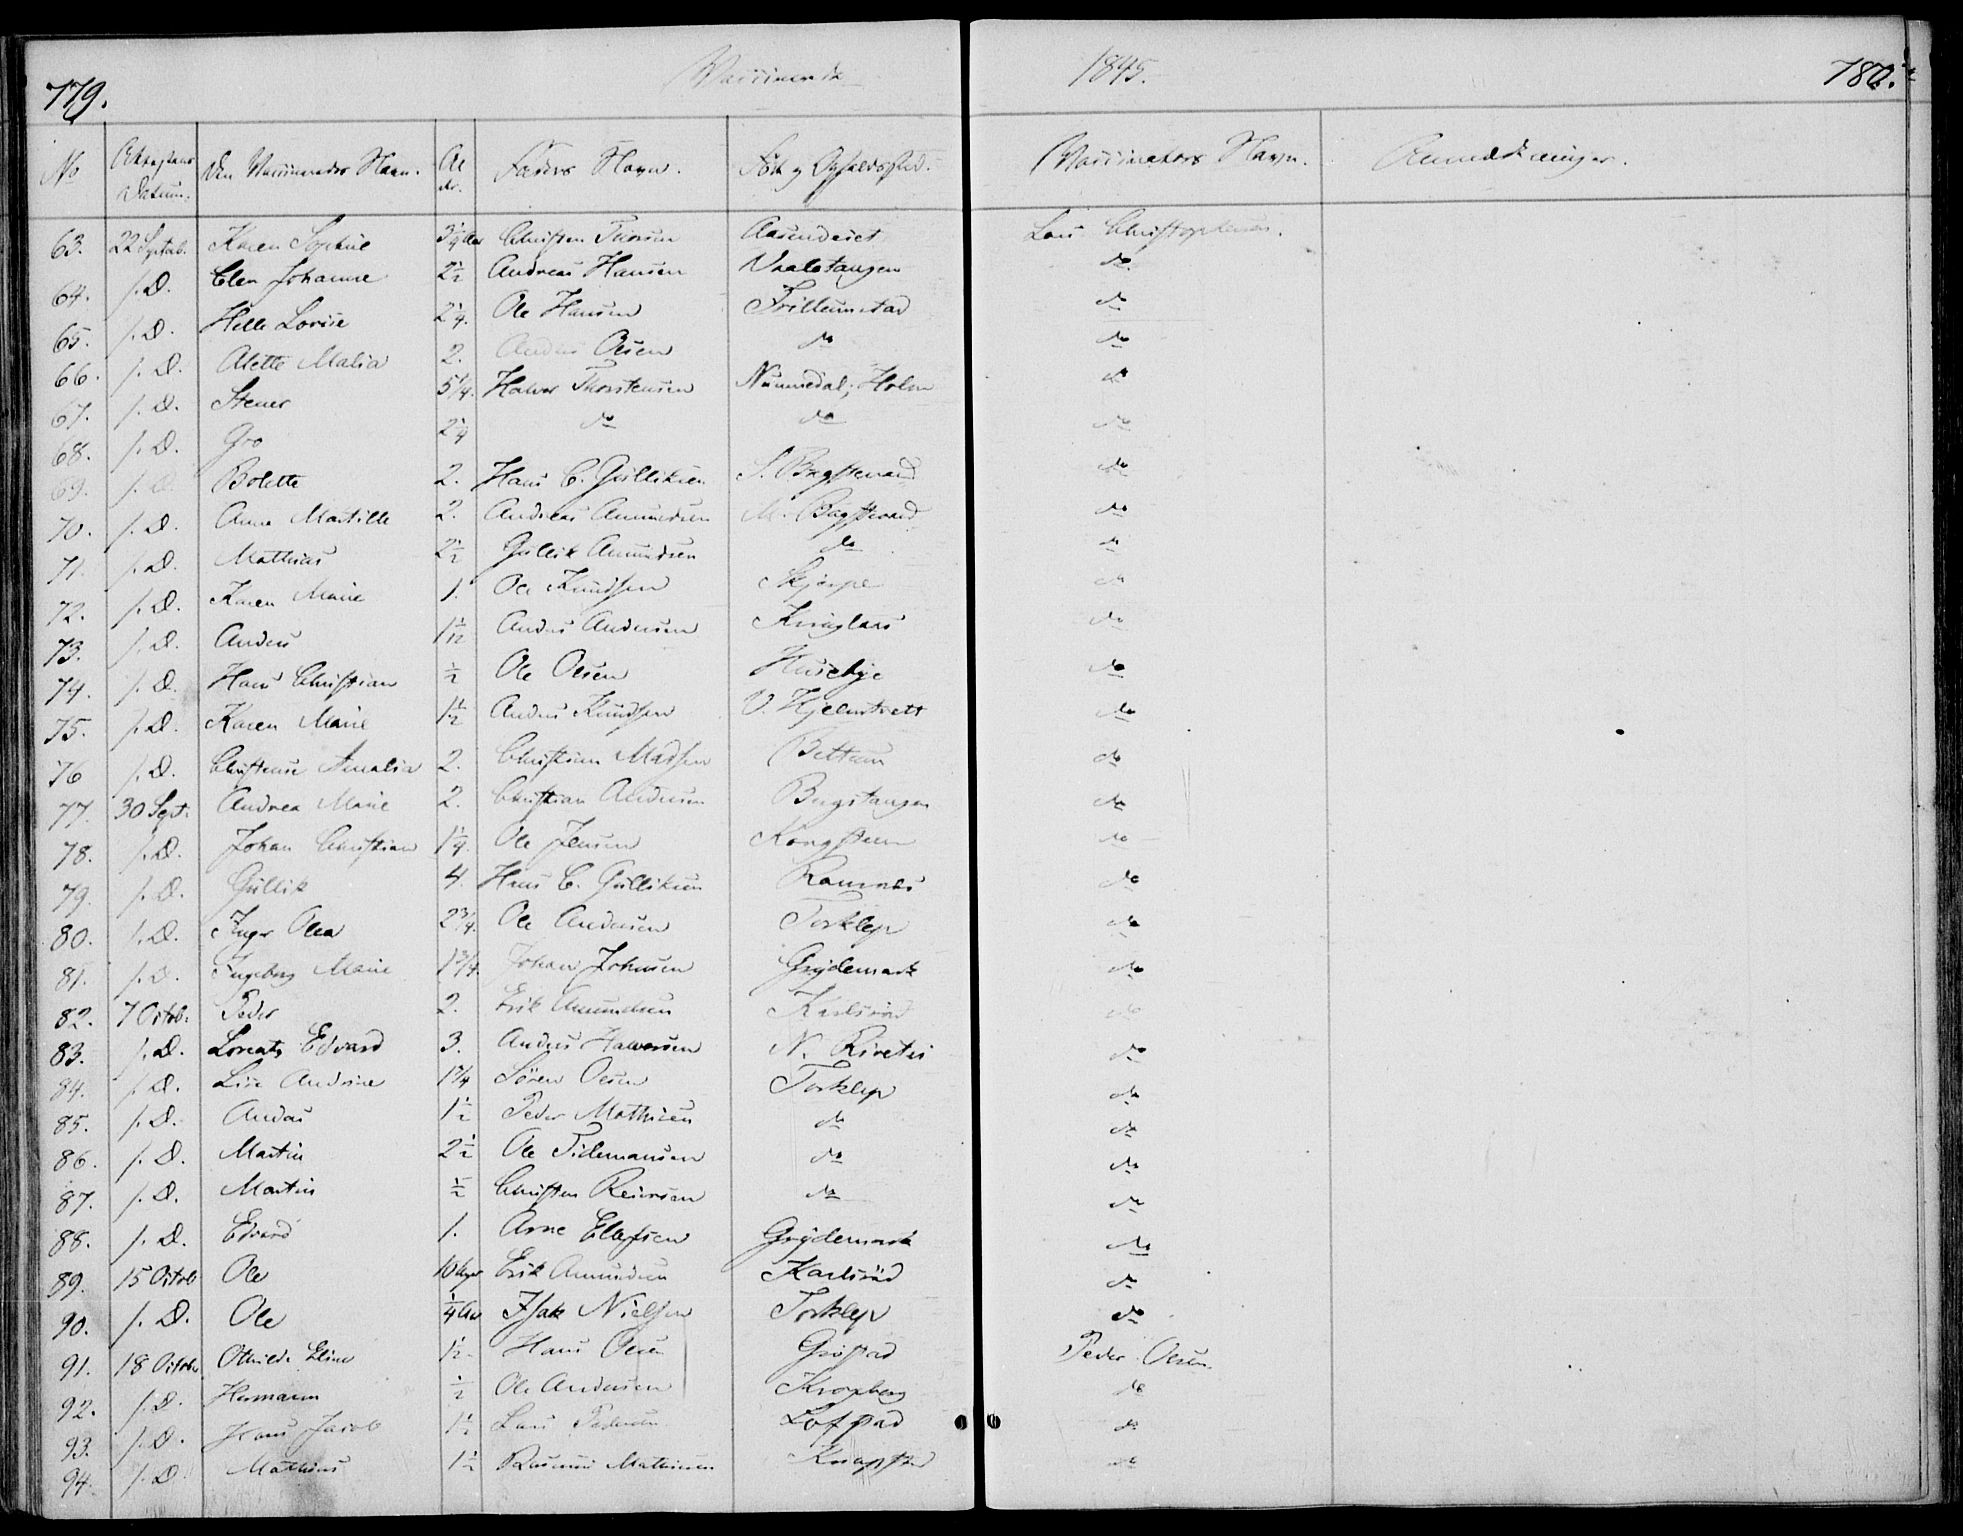 779. Vaccinerede 1845. 780.
No Attestens Datum. Den Vaccineredes Navn. Al der. Faders Navn. Føde og Opholdssted. Vaccinateurs Navn. Anmærkninger.
63. 22 Septeb. Karen Sophie 3 1/4 Aar Christen Iversen Aasendeiet Lars Christophersen.
64. s. D. Elen Johanne 2 1/2 Andreas Hansen Vaaletangen do
65. s. D. Helle Lovise 2 1/4. Ole Hansen Trillumstad do
66. s. D. Alette Malia 2. Anders Olsen do do
67. s. D. Stener 5 1/4. Halvor Thorstensen Nummedal, Holm do
68. s. D. Gro 2 1/4 do do do
69. s. D. Bolette 2. Hans C. Gulliksen S. Bogstrand do
70. s. D. Anne Mathilde 2. Andreas Amundsen M. Bogstrand do
71. s. D. Mathias 2 1/2 Gullik Amundsen do do
72. s. D. Karen Marie 1. Ole Knudsen Skjerpe do
73. s. D. Anders 1 1/12 Anders Andersen do
74. s. D. Hans Christian 1/2 Ole Olsen Husebye do
75. s. D. Karen Marie 1 1/2 Anders Knudsen V. Hjelmtvett do
76 s. D. Christense Amalia 2. Christian Madsen Bettum do
77. 30 Sept. Andrea Marie 2. Christian Andersen Bogstangen do
78. s. D. Johan Christian 1 1/4. Ole Jensen Kongsteen do
79. s. D. Gullik 4. Hans C. Gulliksen Ramnæs do
80. s. D. Inger Olea 2 3/4. Ole Andersen Torklep do
81. s. D. Ingeborg Marie 1 3/4. Johan Johnsen Grydemark do
82. 7 Octob. Peder 2. Erik Amundsen Karlsrød do
83. s. D. Lorents Edvard 3. Anders Halvorsen N. Rivetei do
84. s. D. Lise Andrine 1 3/4 Søren Olsen Torklep do
85. s. D. Andas 1 1/2 Peder Mathisen do do
86. s. D. Martin 2 1/2 Ole Tidemansen do do
87. s. D. Martin 1/2 Christen Reiersen do do
88. s. D. Edvard 1. Arne Elefsen Grydemark do
89. 15 Octob Ole 10 Uger Erik Amundsen Karlsrød do
90. s. D. Ole 1/4 Aar Isak Nielsen Torklep do
91. 18 Octobr Othilde Eline 1 1/2. Hans Olsen Peder Olsen
92. s. D. Hermann 1/2 Ole Andersen Krogsberg do
93. s. D. Hans Jacob 1 1/2 Lars Pedersen Lofstad do
94. s. D. Mathias 1 1/2 Rasmus Mathisen do